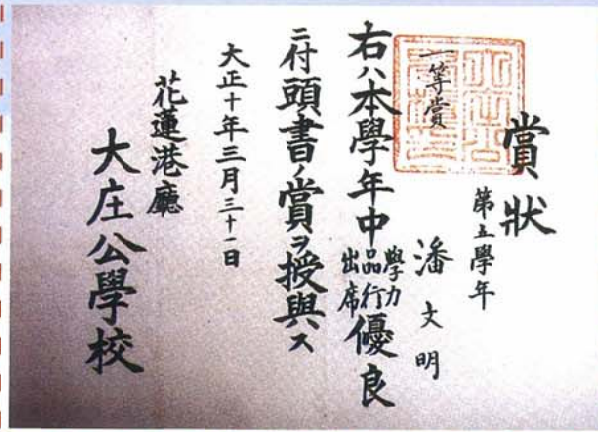 賞狀
第五學年
潘文明
一等賞
右ハ本學年中學力品行出席優良
ニ付頭書ノ賞ヲ授與ス
大正十年三月三十一日
花蓮港廳
大庄公學校